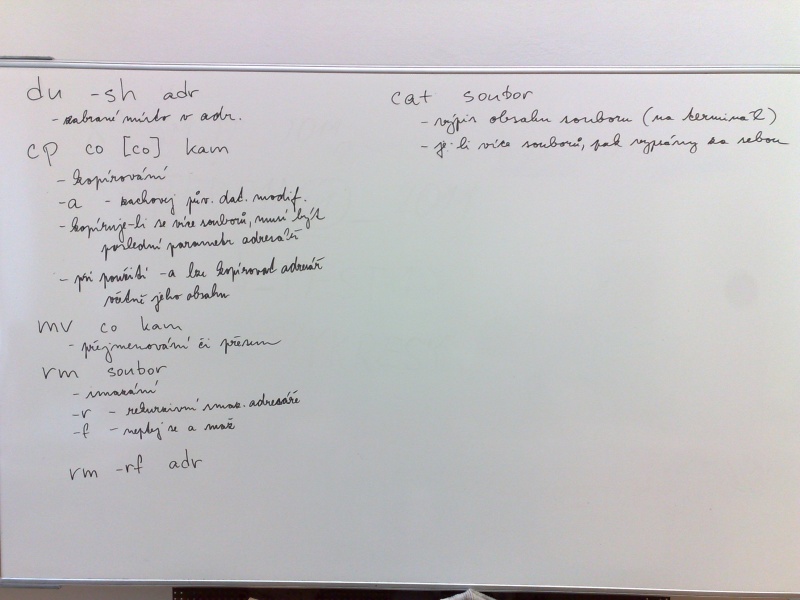 du -sh adr
- zabrané místo v adr.
cp co [co] kam
- kopírování
-a - zachovej pův. dat. modif.
- kopíruje-li se více souborů, musí být
poslední parametr adresář
- při použití -a lze kopírovat adresář
včetně jeho obsahu
mv co kam
- přejmenování či přesun
rm soubor
- smazání
-r - rekurzivní smaz. adresáře
-f - neptej se a maž
rm -rf adr
cat soubor
- výpis obsahu souboru (na terminál)
- je-li více souborů, pak vypsány za sebou